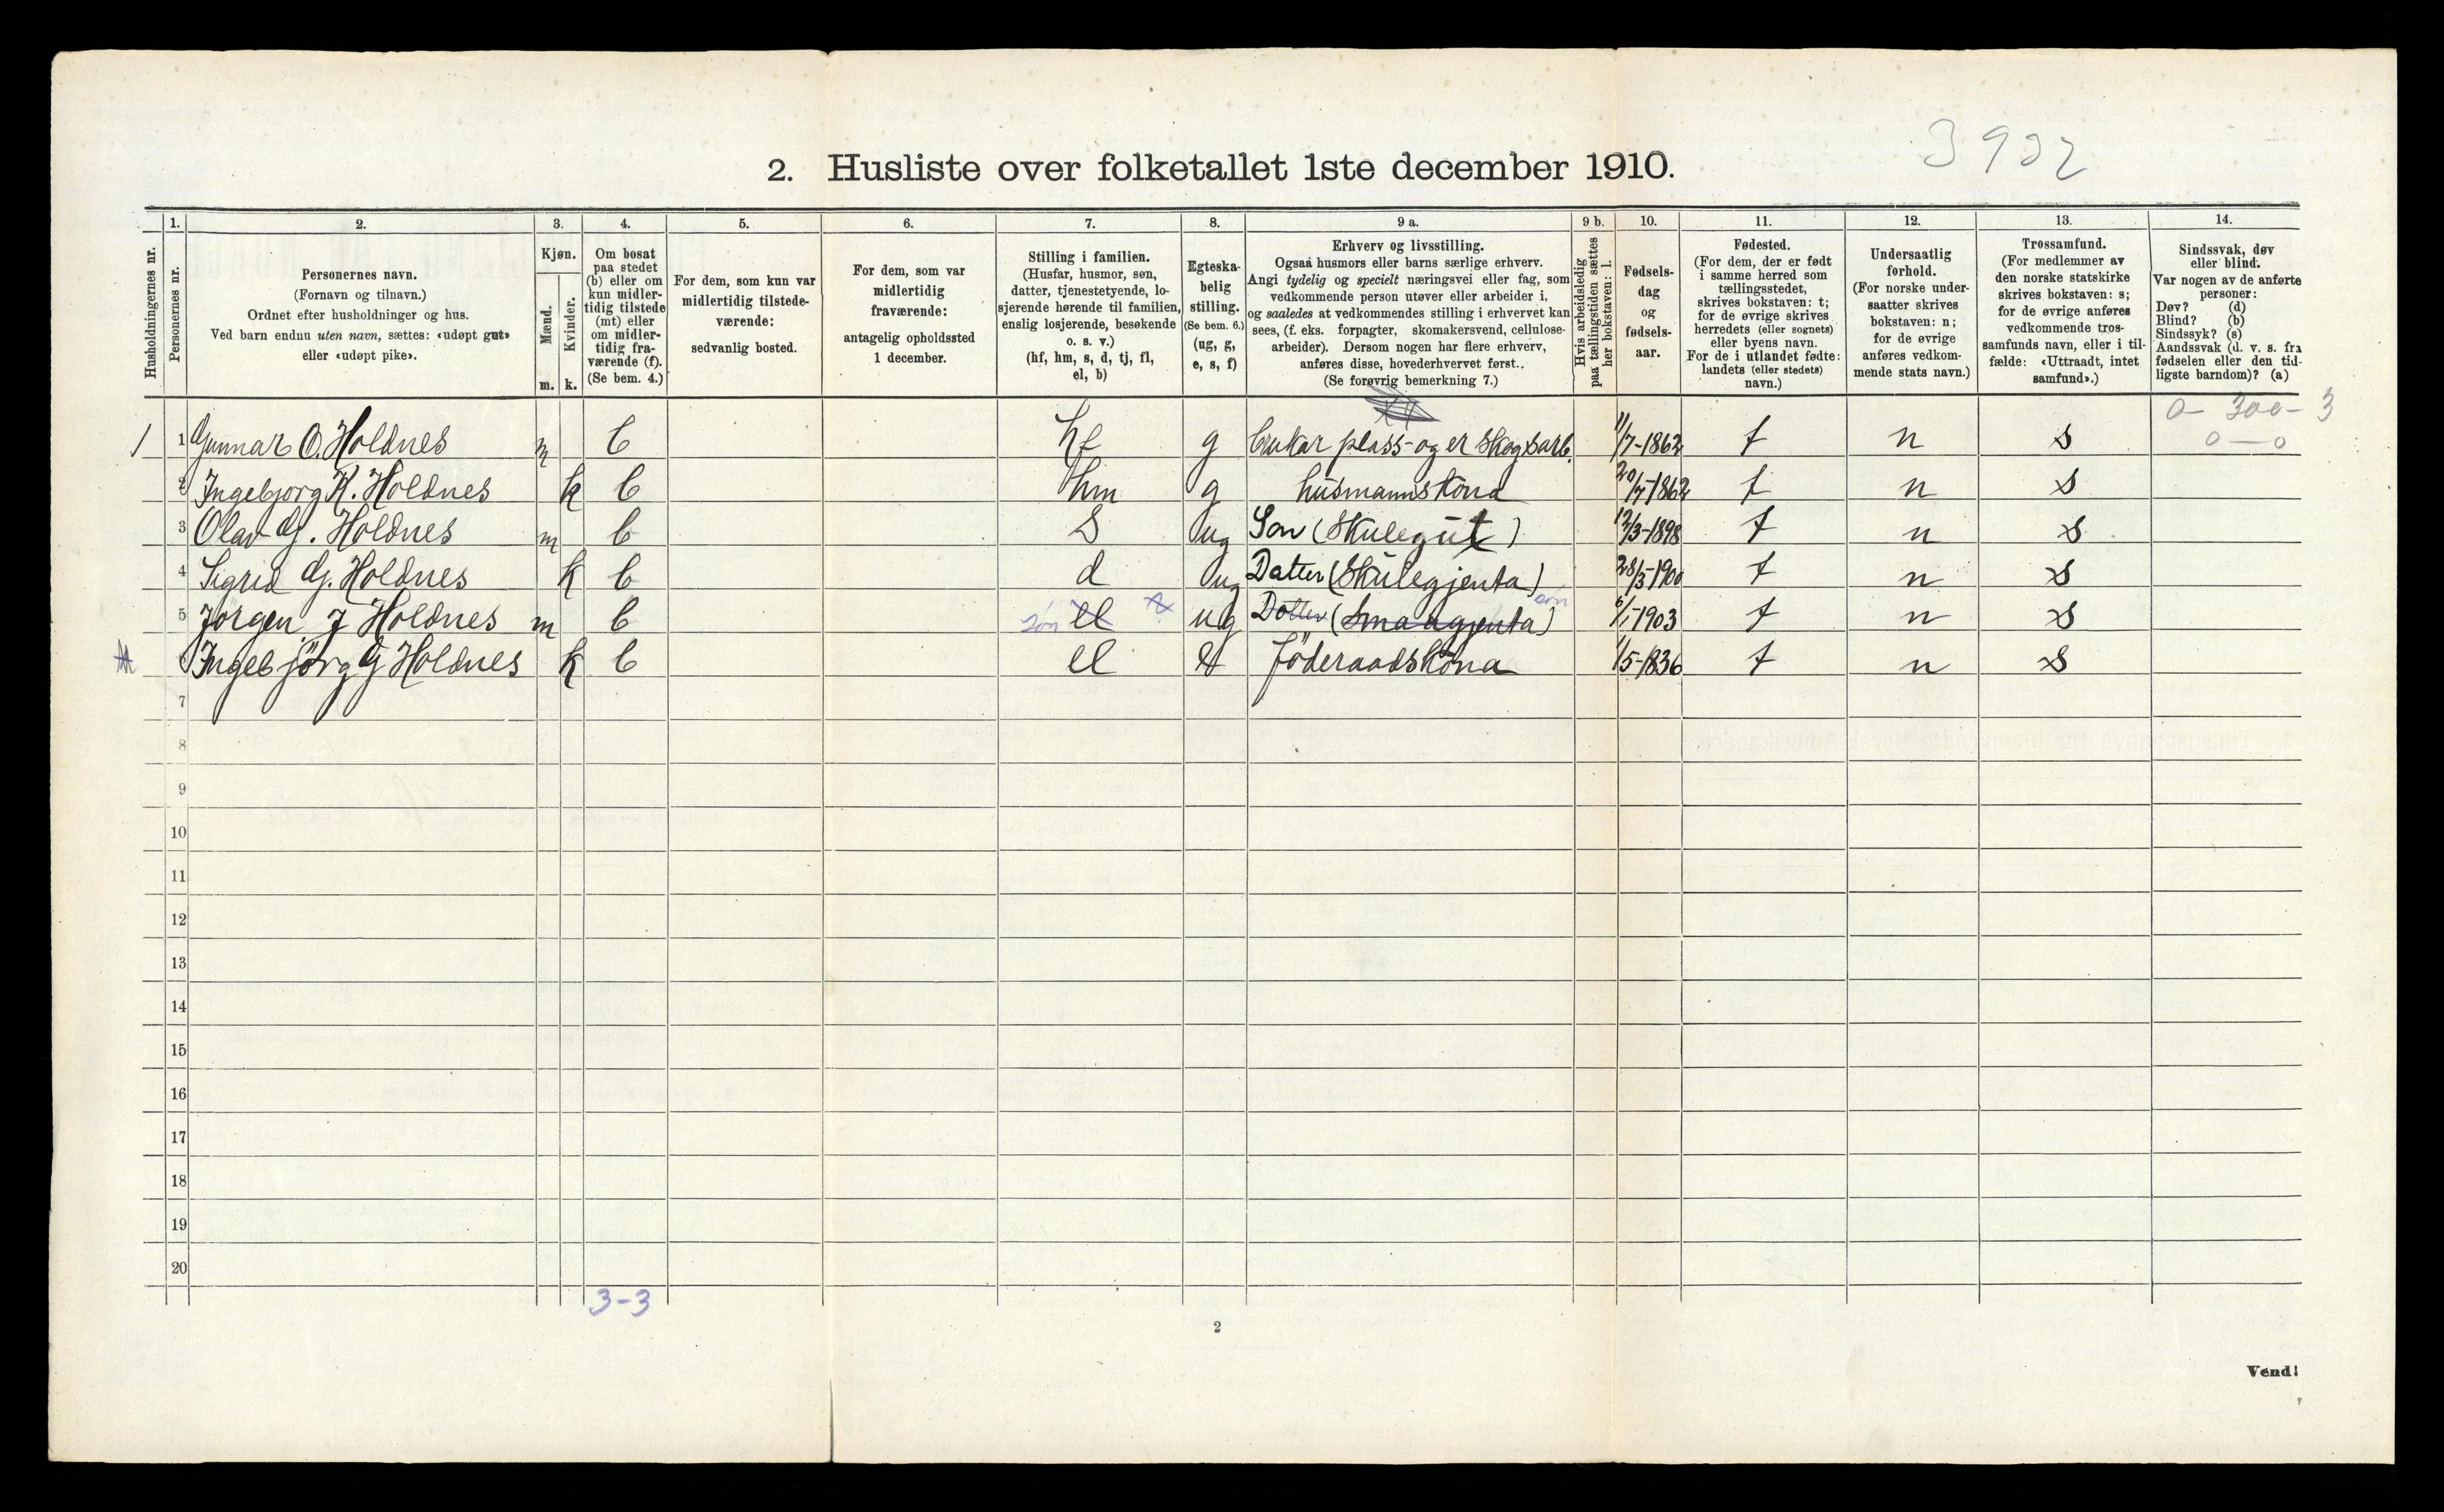 3902
2. Husliste over folketallet 1ste december 1910.
1. 2. 3. 4. 5. 6. 7. 8. 9 a. 9 b. 10. 11. 12. 13. 14.
Husholdningernes nr.
Personernes nr.
Personernes navn.
(Fornavn og tilnavn.)
Ordnet efter husholdninger og hus.
Ved barn endnu uten navn, sættes: «udøpt gut»
eller «udøpt pike».
Kjøn.
Mænd.
Kvinder.
m. k.
Om bosat
paa stedet
(b) eller om
kun midler-
tidig tilstede
(mt) eller
om midler-
tidig fra-
værende (f).
(Se bem. 4.)
For dem, som kun var
midlertidig tilstede-
værende:
sedvanlig bosted.
For dem, som var
midlertidig
fraværende:
antagelig opholdssted
1 december.
Stilling i familien.
(Husfar, husmor, søn,
datter, tjenestetyende, lo-
sjerende hørende til familien,
enslig losjerende, besøkende
o. s. v.)
(hf, hm, s, d, tj, fl,
el, b)
Egteska-
belig
stilling.
(Se bem. 6.)
(ug, g,
e, s, f)
Erhverv og livsstilling.
Ogsaa husmors eller barns særlige erhverv.
Angi tydelig og specielt næringsvei eller fag, som
vedkommende person utøver eller arbeider i,
og saaledes at vedkommendes stilling i erhvervet kan
sees, (f. eks. forpagter, skomakersvend, cellulose-
arbeider). Dersom nogen har flere erhverv,
anføres disse, hovederhvervet først..
(Se forøvrig bemerkning 7.)
Hvis arbeidsledig
paa tællingstiden sættes
her bokstaven: l.
Fødsels-
dag
og
fødsels-
aar.
Fødested.
(For dem, der er født
i samme herred som
tællingsstedet,
skrives bokstaven: t;
for de øvrige skrives
herredets (eller sognets)
eller byens navn.
For de i utlandet fødte:
landets (eller stedets)
navn.)
Undersaatlig
forhold.
(For norske under-
saatter skrives
bokstaven: n;
for de øvrige
anføres vedkom-
mende stats navn.)
Trossamfund.
(For medlemmer av
den norske statskirke
skrives bokstaven: s;
for de øvrige anføres
vedkommende tros-
samfunds navn, eller i til-
fælde: «Uttraadt, intet
samfund».)
Sindssvak, døv
eller blind.
Var nogen av de anførte
personer:
Døv? (d)
Blind? (b)
Sindssyk? (s)
Aandssvak (d. v. s. fra
fødselen eller den tid-
ligste barndom)? (a)
0 - 300 - 3
0 - 0
1 1 Gunnar O. Holdnes m b hf g brukar plass- og er skogsarb. 11/7-1862 t n s
2 Ingebjorg K. Holdnes k b hm g husmannskona 20/7-1862 t n s
3 Olav G. Holdnes m b s ug Son (Skulegut) 12/3-1898 t n s
4 Sigrid G. Holdnes k b d ug Datter (Skulegjenta) 28/5-1900 t n s
5 Jørgen J Holdnes m b søn el ug Dotter (Smaagjenta) søn 6/1-1903 t n s
6 Ingebjörg G Holdnes k b el e Föderaadskona 1/5-1836 t n s
7
8
9
10
11
12
13
14
15
16
17
18
19
20
3-3
2
Vend!